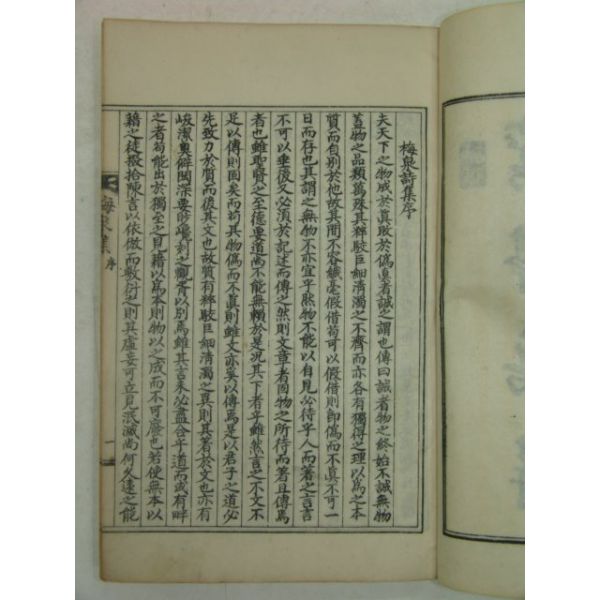 梅泉詩集序
夫天下之物成於眞敗於僞眞者誠之謂也傳曰誠者物之終始不誠無物
蓋物之品類萬殊其粹駁巨細淸濁之不齊而亦各有獨得之理以爲之本
質而自別於他故其間不容纖毫假借苟可以假借則卽僞而不眞不可一
日而存也其謂之無物不亦宜乎然物不能以自見必待乎人而著之言言
不可以垂後又必須於記述而傳之然則文章者固物之所待而著且傳焉
者也雖聖賢之至德要道尙不能無賴於是况其下者乎雖然言之不文不
足以傳則固矣而苟其物僞而不眞則雖文亦奚以傳焉是以君子之道必
先致力於質而後其文也故質有粹駁巨細淸濁之異則其著於文也亦有
峻潔奧僻閎深要眇之觀者以別焉雖其言未必盡合乎道而或有畔
之者苟能出於獨至之見藉以爲本則物以之成而不可廢也若使無本以
藉之徒掇拾陳言以依倣而敷衍之則其虛妄可立見泯滅尙何久遠之能
梅泉集
序
一